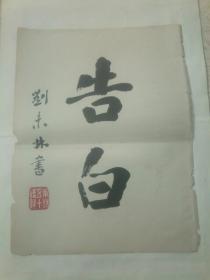 告白
刘未林書